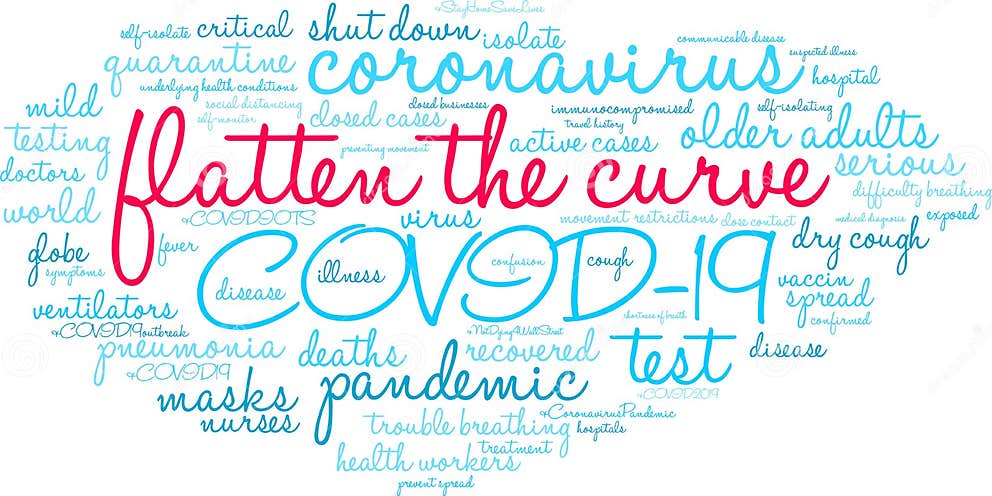 #StayHomeSaveLives
self-isolate critical shut down isolate
communicable disease
suspected illness
quarantine coronavirus hospital
underlying health conditions
mild social distancing closed businesses immunocompromised self-isolating
self-monitor closed cases travel history older adults
testing flatten the curve active cases serious
preventing movement
doctors difficulty breathing
world #COVID19OTS virus movement restrictions close contact medical diagnosis exposed
globe fever COVID-19 dry cough
symptoms illness confusion cough
disease vaccin
ventilators spread
shortness of breath confirmed
#COVID19outbreak #NotDying4WallStreet
pneumonia deaths recovered test disease
#COVID19 pandemic #COVID2019
masks #CoronavirusPandemic
nurses trouble breathing hospitals
treatment
health workers
prevent spread